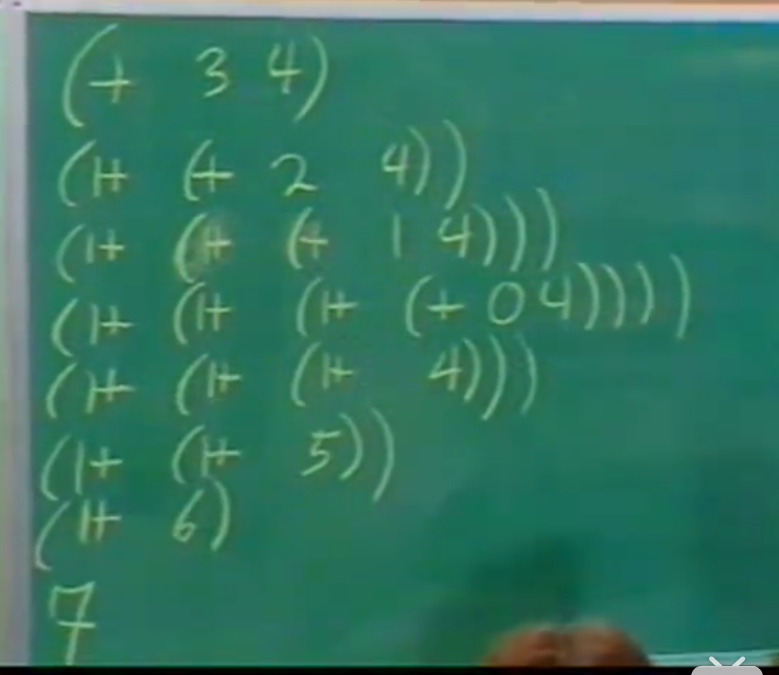 (+ 3 4)
(1+ (+ 2 4))
(1+ (1+ (+ 1 4)))
(1+ (1+ (1+ (+ 0 4))))
(1+ (1+ (1+ 4)))
(1+ (1+ 5))
(1+ 6)
7